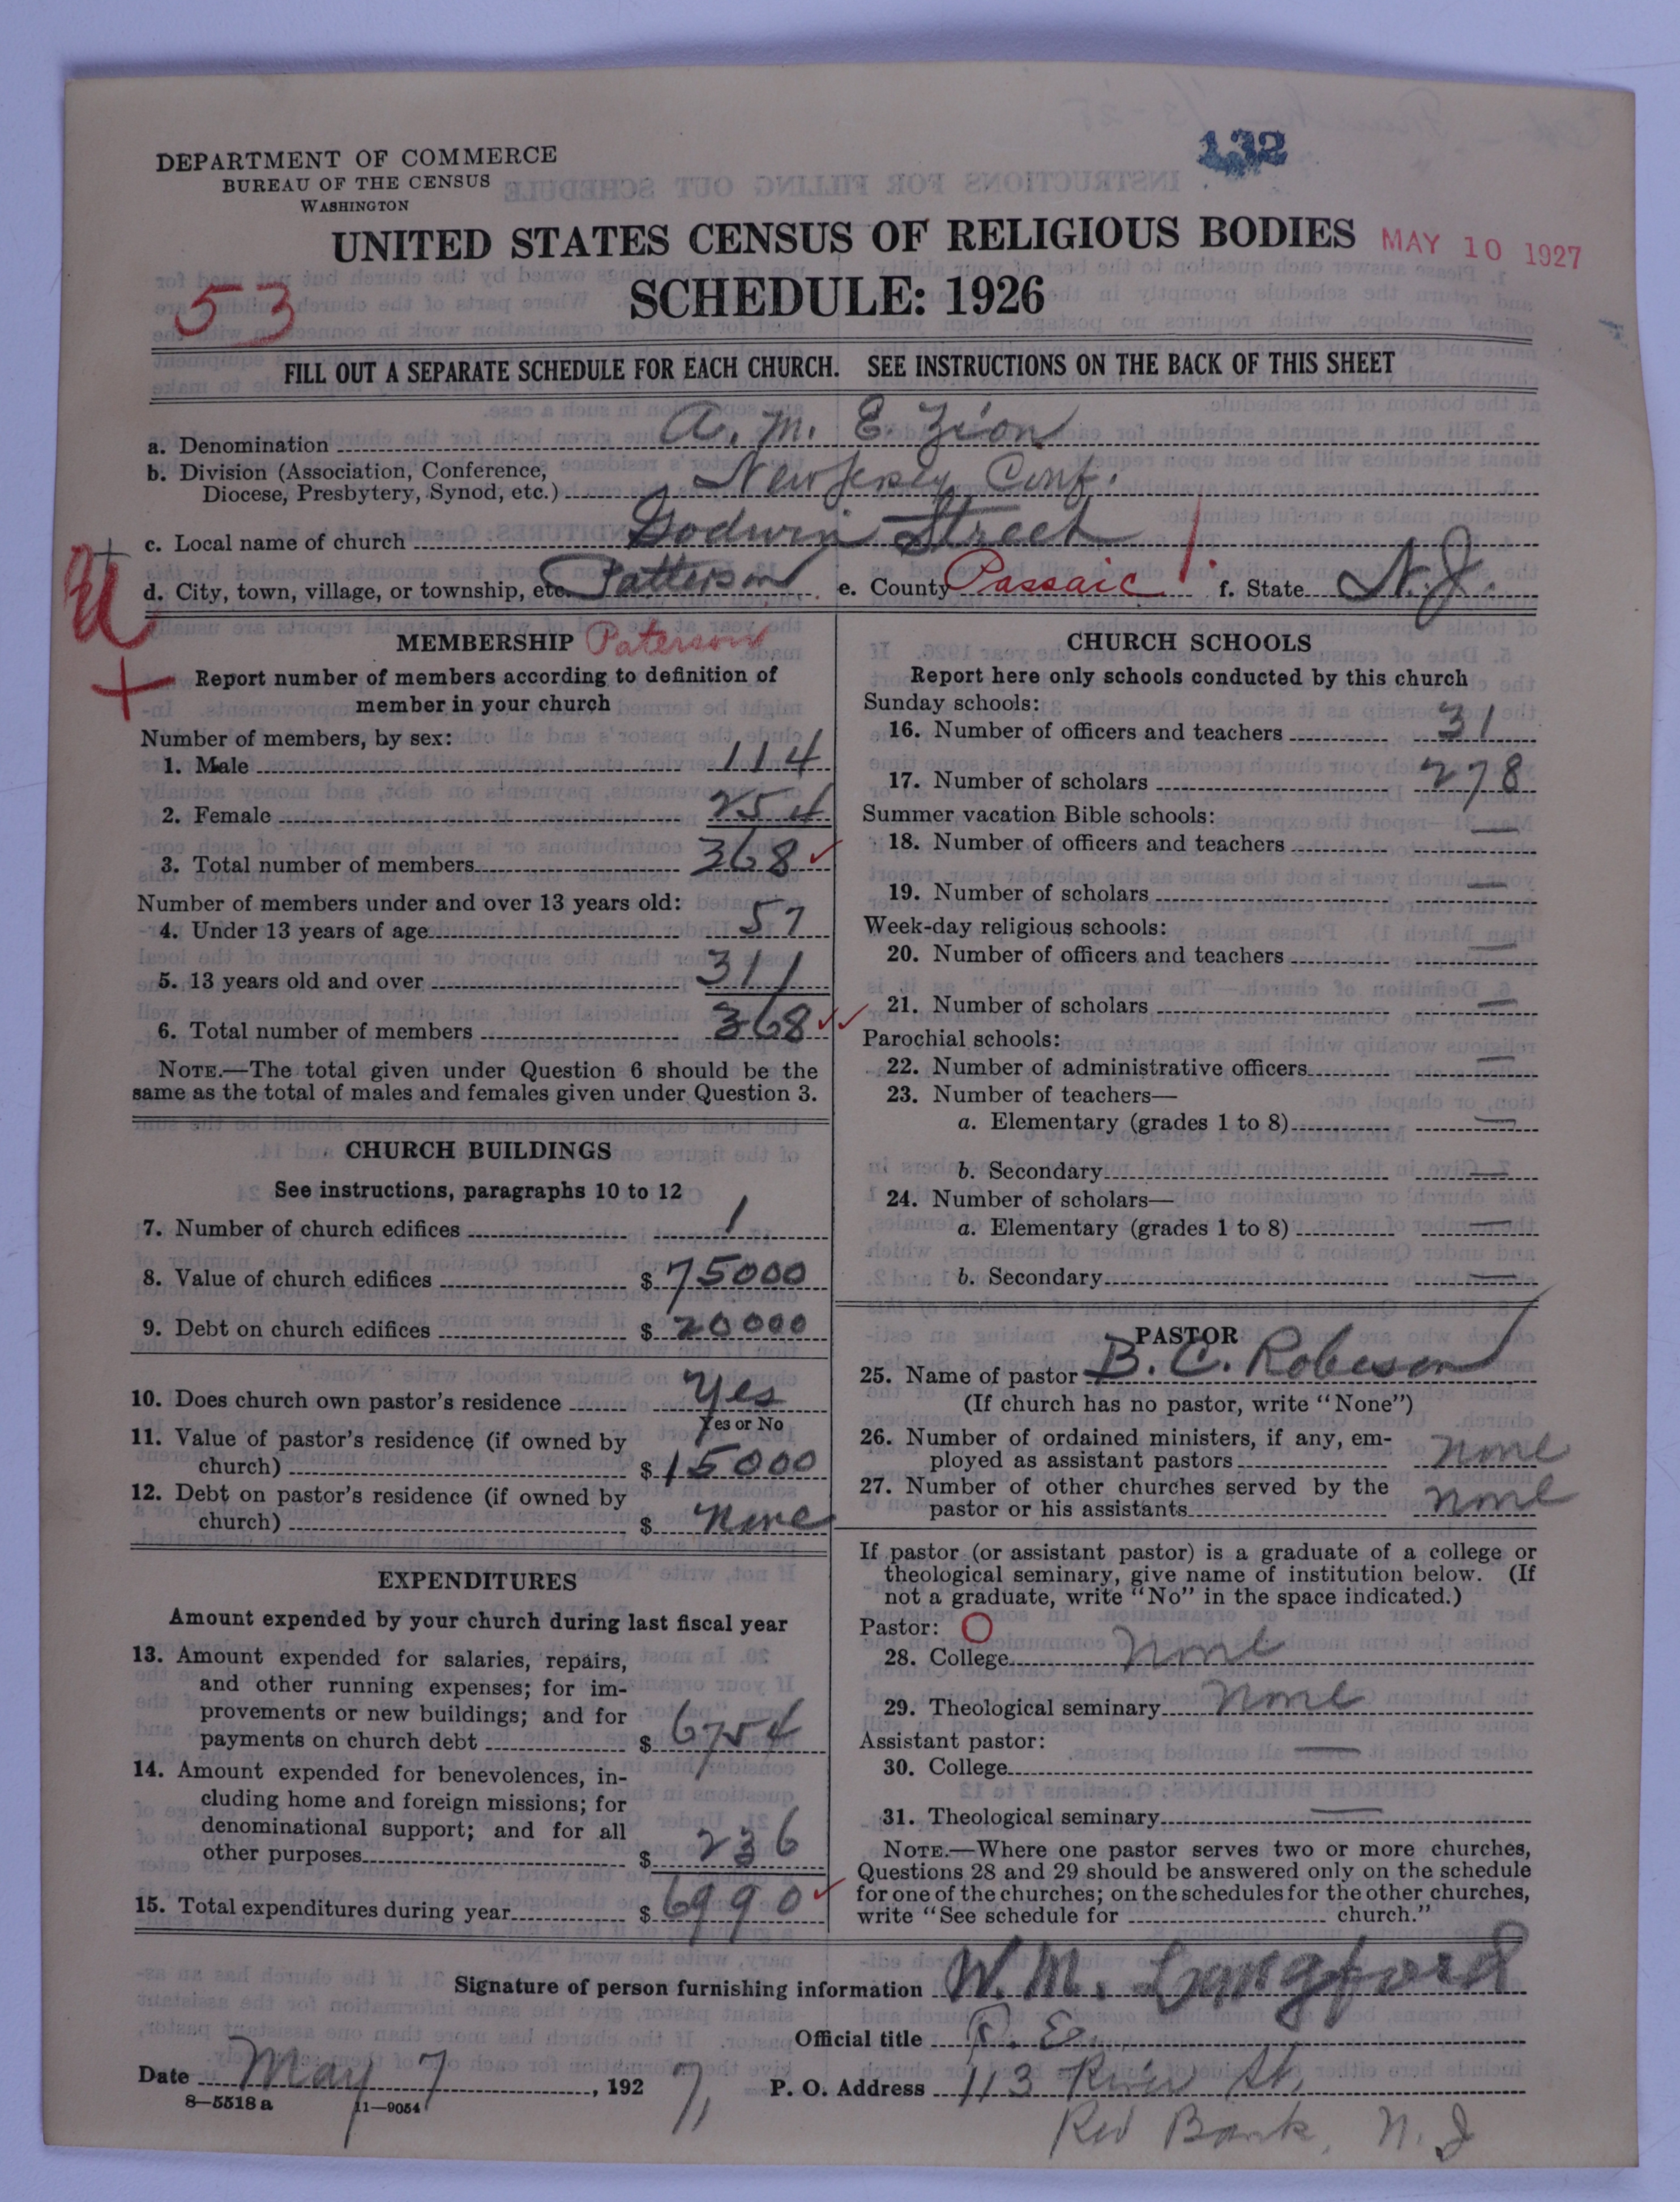 132
DEPARTMENT OF COMMERCE
BUREAU OF THE CENSUS
WASHINGTON
UNITED STATES CENSUS OF RELIGIOUS BODIES
MAY 10 1927
SCHEDULE: 1926
53
FILL OUT A SEPARATE SCHEDULE FOR EACH CHURCH. SEE INSTRUCTIONS ON THE BACK OF THIS SHEET
a. Denomination A. M. E. Zion
b. Division (Association, Conference,
Diocese, Presbytery, Synod, etc.) New Jersey Conf.
c. Local name of church Godwin Street
d. City, town, village, or township, etc. Patterson e. County Passaic f. State N. J.
MEMBERSHIP Paterson
Report number of members according to definition of
member in your church
Number of members, by sex:
1. Male 114
2. Female 254
3. Total number of members 368
Number of members under and over 13 years old:
4. Under 13 years of age 57
5. 13 years old and over 311
6. Total number of members 368
NOTE.—The total given under Question 6 should be the
same as the total of males and females given under Question 3.
CHURCH BUILDINGS
See instructions, paragraphs 10 to 12
7. Number of church edifices 1
8. Value of church edifices $ 75000
9. Debt on church edifices $ 20000
10. Does church own pastor's residence Yes
Yes or No
11. Value of pastor's residence (if owned by
church) $ 15000
12. Debt on pastor's residence (if owned by
church) $ None
EXPENDITURES
Amount expended by your church during last fiscal year
13. Amount expended for salaries, repairs,
and other running expenses; for im-
provements or new buildings; and for
payments on church debt $ 6754
14. Amount expended for benevolences, in-
cluding home and foreign missions; for
denominational support; and for all
other purposes $ 236
15. Total expenditures during year $ 6990
CHURCH SCHOOLS
Report here only schools conducted by this church
Sunday schools:
16. Number of officers and teachers 31
17. Number of scholars 278
Summer vacation Bible schools:
18. Number of officers and teachers —
19. Number of scholars —
Week-day religious schools:
20. Number of officers and teachers —
21. Number of scholars —
Parochial schools:
22. Number of administrative officers —
23. Number of teachers—
a. Elementary (grades 1 to 8) —
b. Secondary —
24. Number of scholars—
a. Elementary (grades 1 to 8) —
b. Secondary —
PASTOR
25. Name of pastor B. C. Robeson
(If church has no pastor, write "None")
26. Number of ordained ministers, if any, em-
ployed as assistant pastors none
27. Number of other churches served by the
pastor or his assistants none
If pastor (or assistant pastor) is a graduate of a college or
theological seminary, give name of institution below. (If
not a graduate, write "No" in the space indicated.)
Pastor: O
28. College none
29. Theological seminary none
Assistant pastor:
30. College —
31. Theological seminary —
NOTE.—Where one pastor serves two or more churches,
Questions 28 and 29 should be answered only on the schedule
for one of the churches; on the schedules for the other churches,
write "See schedule for church."
Signature of person furnishing information W. M. Langford
Official title P. E.
Date May 7, 1927 P. O. Address 113 River St.
8—5518 a 11—9054
Red Bank, N. J